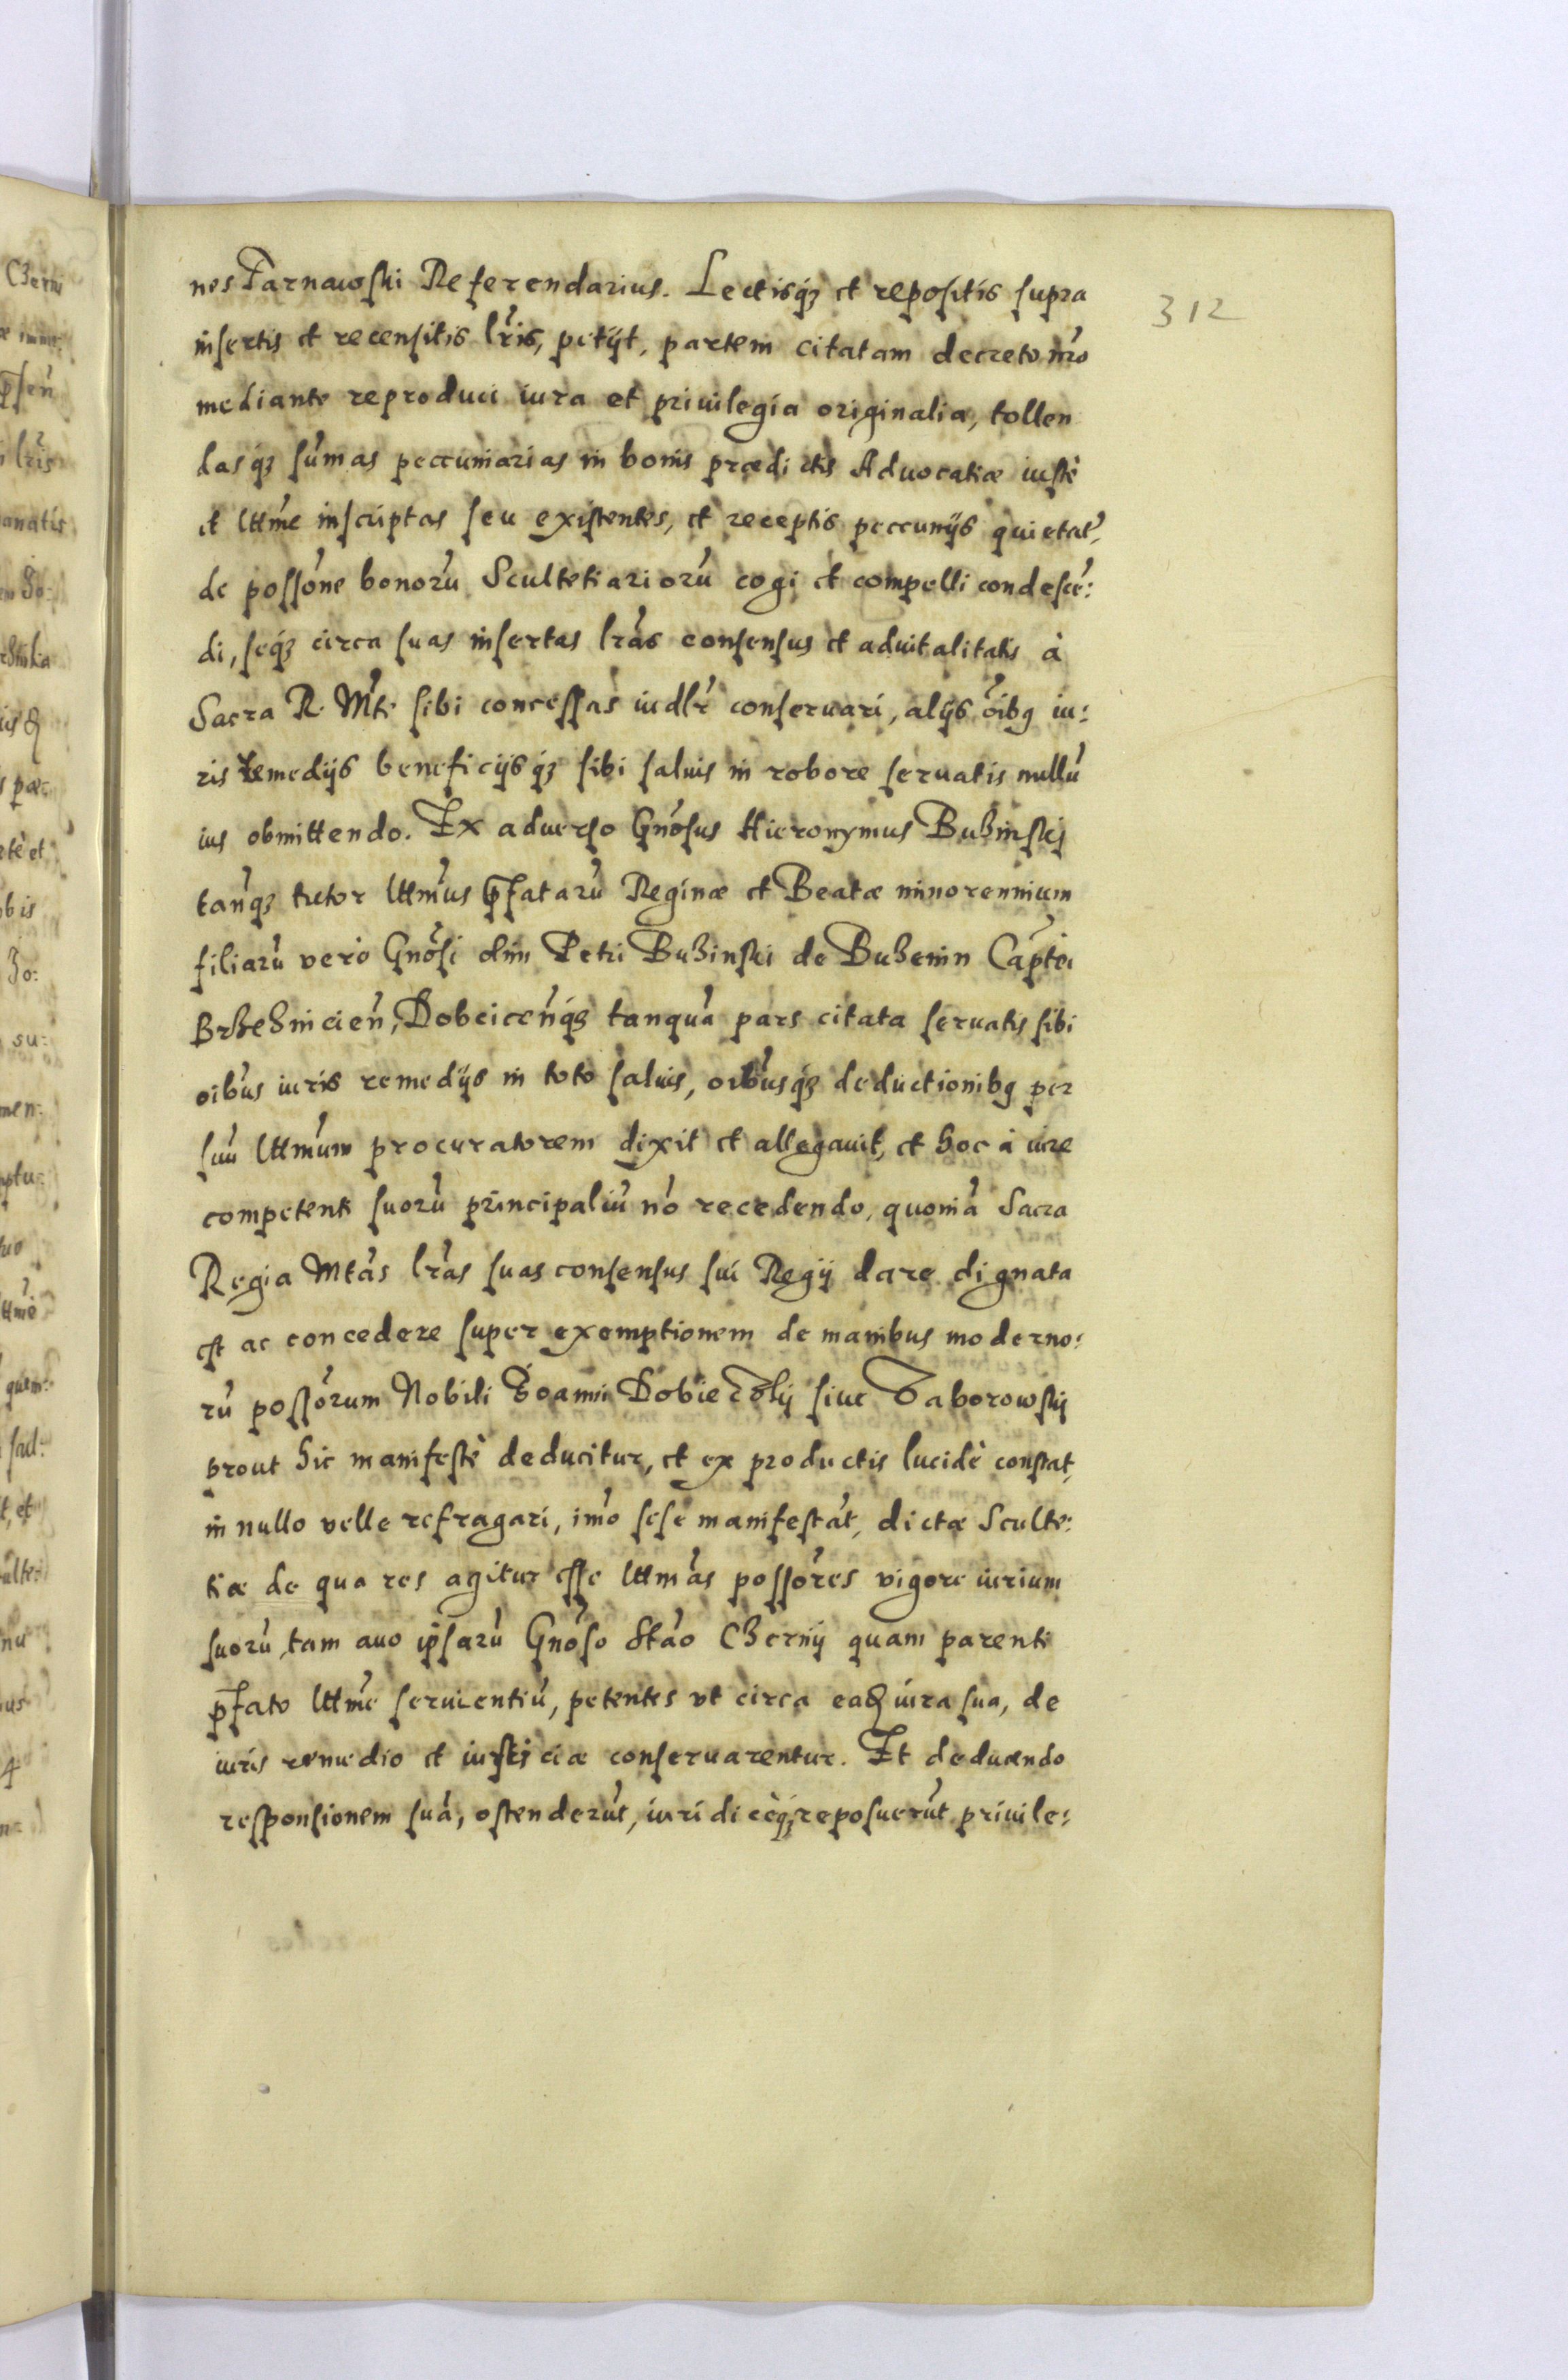 312
nes Tarnawski Referendarius. Lectisq̃ et repositis supra
insertis et recensitis lr̃is, petijt, partem citatam decreto nr̃o
mediante reproduci iura et priuilegia originalia, tollen
dasq̃ sum̃as peccuniarias in bonis prædictis Aduocatiæ iustè
et lttm̃e inscriptas seu existentes, et receptis peccunijs quietat̃,
de possõne bonorũ Scultetiariorũ cogi et compelli condescẽ:
di, seq̃ circa suas insertas lr̃as consensus et aduitalitatis à
Sacra R. Mt̃e sibi concessas iudlr̃ conseruari, alijs õibꝫ iu:
ris remedijs beneficijsq̃ sibi saluis in robore seruatis nullũ
ius obmittendo. Ex aduerso Gnõsus Hieronymus Buzinskj
tanq̃ tutor lttm̃us p̃fatarũ Reginæ et Beatæ minorennium
filiarũ verò Gnõsi olim Petri Buzinski de Buzenin Cap̃tei
Brzeznicien̄, Dobcicen̄q̃ tanquã pars citata seruatis sibi
oib̃us iuris remedijs in toto saluis, oib̃usq̃ deductionibꝫ per
suũ lttm̃um procuratorem dixit et allegauit, et hoc à iure
competenti suorũ principaliũ nõ recedendo, quoniã Sacra
Regia Mtãs lr̃as suas consensus sui Regij dare dignata
est ac concedere super exemptionem de manibus moderno:
rũ possõrum Nobili Ioanni siue Taborowskj
prout hic manifestè deducitur, et ex productis lucidè constat,
in nullo velle refragari, imõ sese manifestãt, dictæ Sculte:
tiæ de qua res agitur esse lttmãs possõres vigore iurium
suorũ, tam auo ip̃sarũ Gnõso Stão Czernij quam parenti
p̃fato lttm̃e seruientiũ, petentes vt circa eadꝫ iura sua, de
iuris remedio et iusticiæ conseruarentur. Et deducendo
responsionem suã, ostenderũt, iuridicèq̃ reposuerũt priuile: